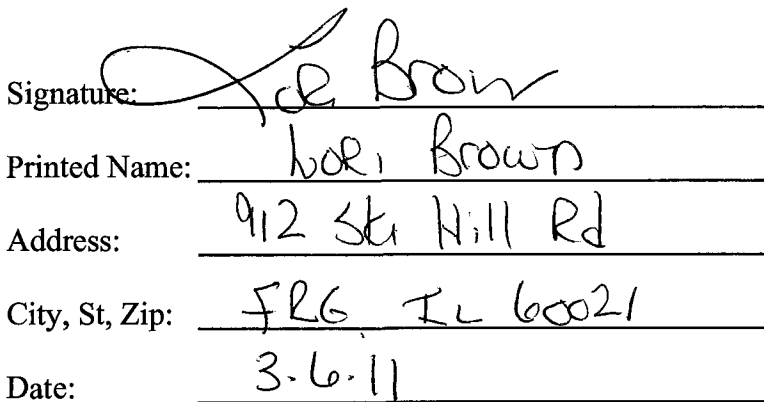 Signature: Lori Brown
Printed Name: LORi Brown
Address: 912 Ski Hill Rd
City, St, Zip: FRG IL 60021
Date: 3.6.11